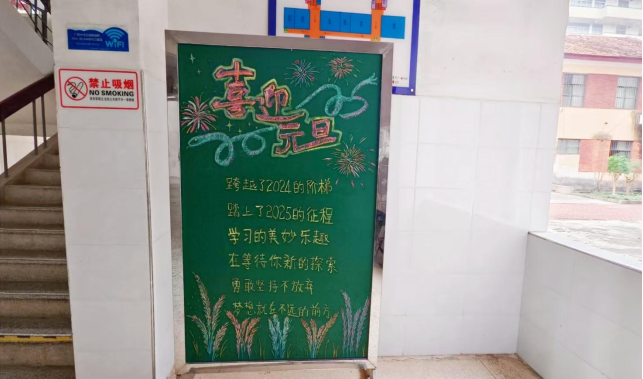 WiFi
禁止吸烟
NO SMOKING
喜迎
元旦
跨越了2024的阶梯
踏上了2025的征程
学习的美妙乐趣
在等待你新的探索
勇敢坚持不放弃
梦想就在不远的前方